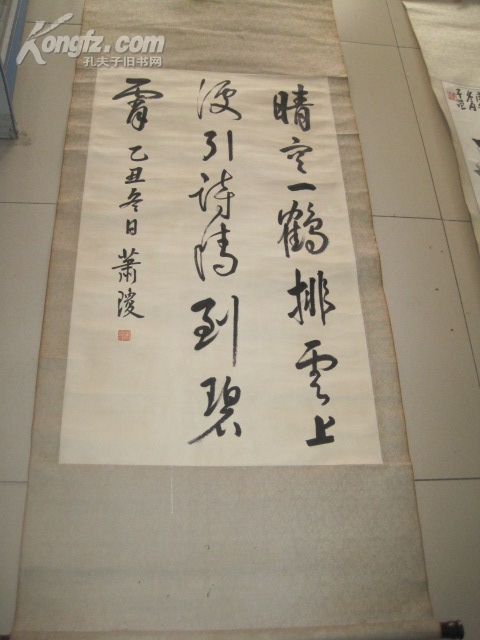 Kongfz.com
孔夫子旧书网
晴空一鹤排云上
便引诗情到碧
霄 乙丑冬日 萧陵